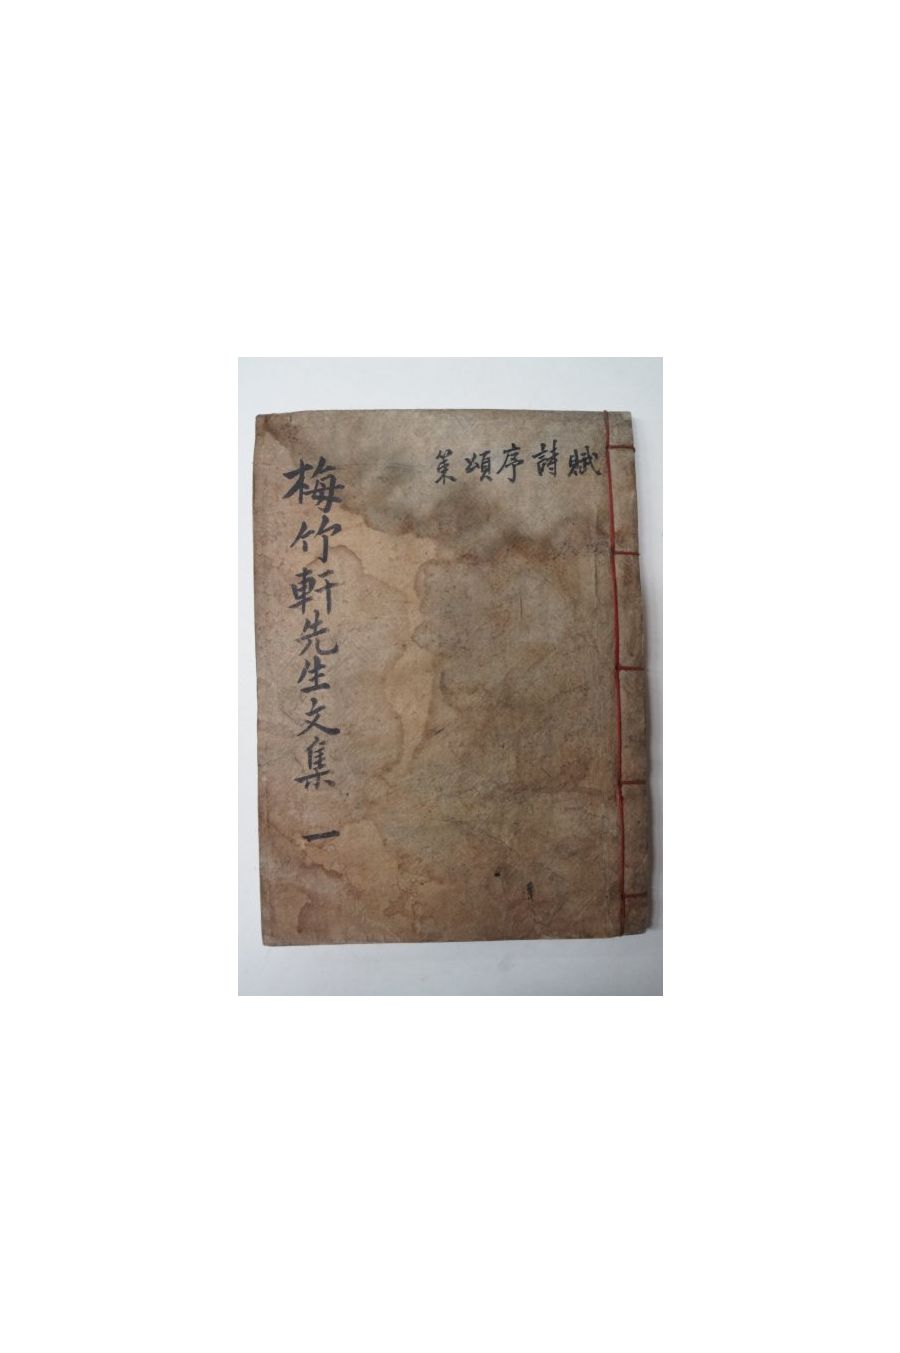 賦詩序頌策
梅竹軒先生文集 一